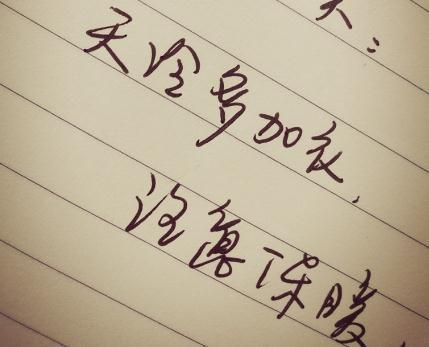 天冷多加衣，
注意保暖